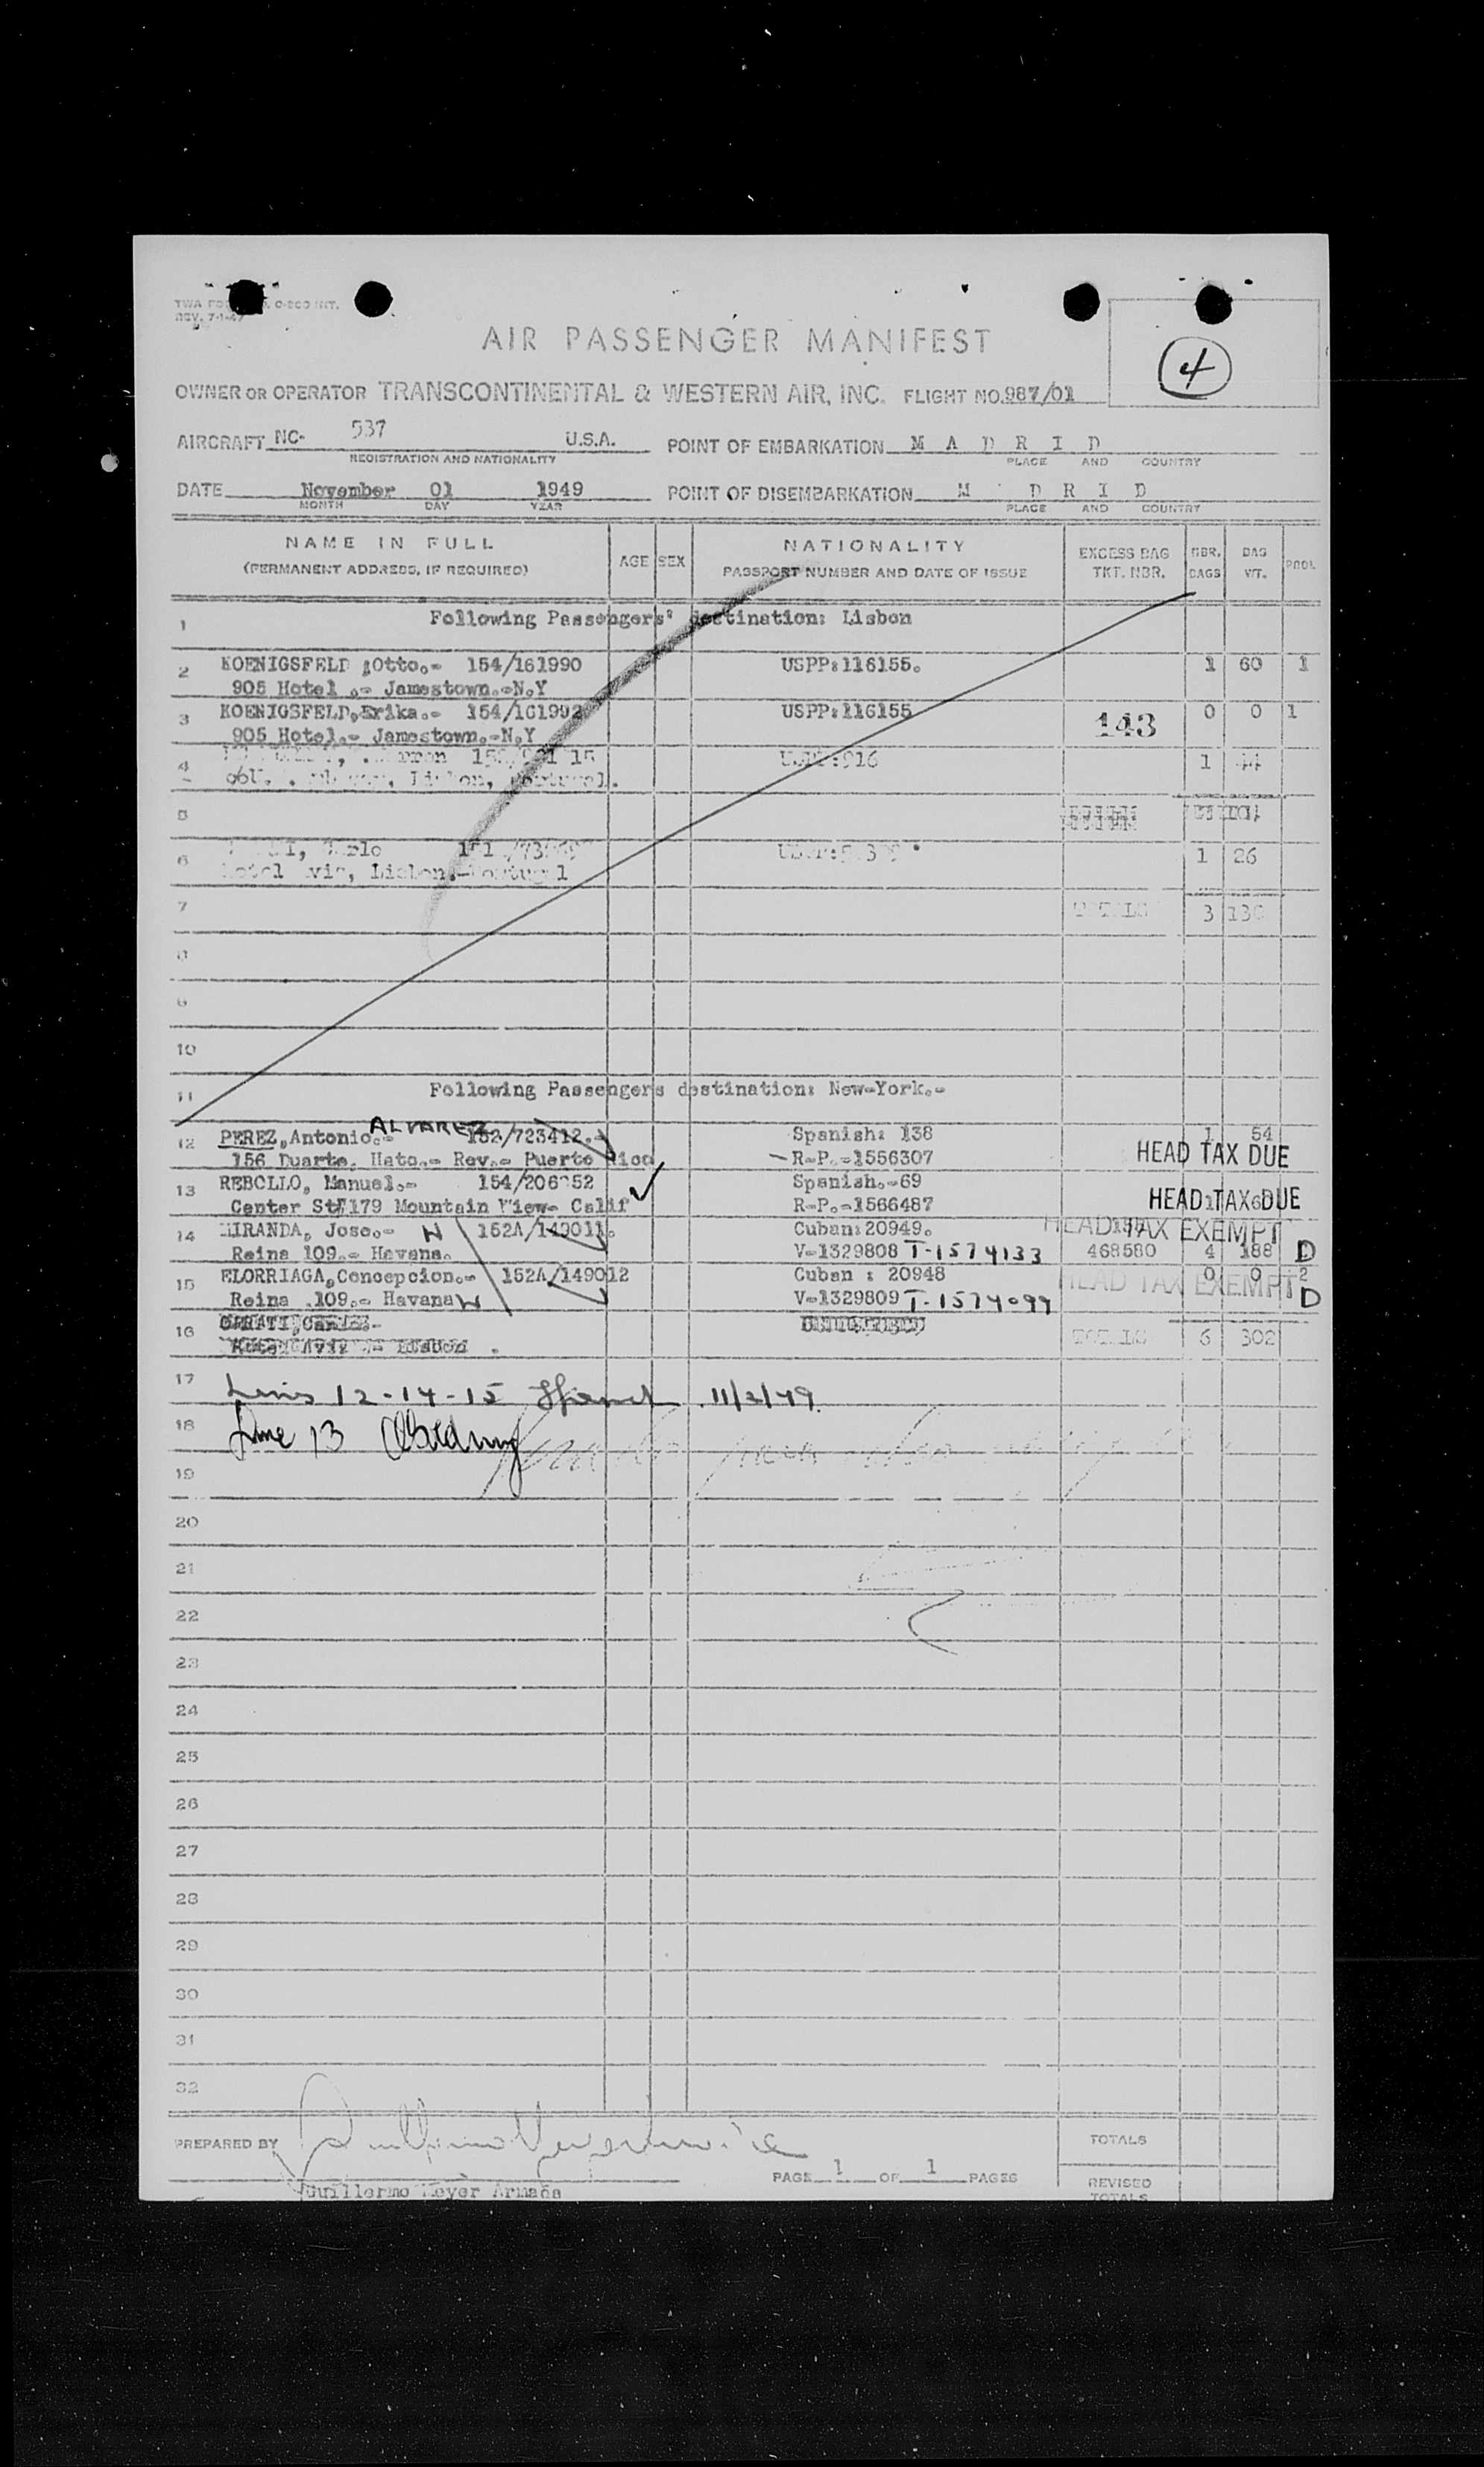 REV. 7-1-47
AIR PASSENGER MANIFEST
4
OWNER OR OPERATOR TRANSCONTINENTAL & WESTERN AIR, INC. FLIGHT NO. 987/01
AIRCRAFT NC- 537 U.S.A. POINT OF EMBARKATION M A D R I D
REGISTRATION AND NATIONALITY PLACE AND COUNTRY
DATE November 01 1949 POINT OF DISEMBARKATION M D R I D
MONTH DAY YEAR PLACE AND COUNTRY
NAME IN FULL AGE SEX NATIONALITY EXCESS BAG NBR. BAG POOL
(PERMANENT ADDRESS, IF REQUIRED) PASSPORT NUMBER AND DATE OF ISSUE TKT. NBR. BAGS WT.
1 Following Passengers' destination: Lisbon
2 KOENIGSFELD ;Otto.- 154/161990 USPP:116155. 1 60 1
905 Hotel .- Jamestown.-N.Y
3 KOENIGSFELD,Erika.- 154/161992 USPP:116155 143 0 0 1
905 Hotel.- Jamestown.-N.Y
4 916 1 44
Lisbon, Portugal.
5
6 1 26
Lisbon.-Portugal
7 TOTALS 3 130
8
9
10
11 Following Passengers destination: New-York.-
12 PEREZ,Antonio.- ALVAREZ 152/723412.- Spanish: 138 1 54
156 Duarte. Hato.- Rey.- Puerto Rico R-P.-1556307 HEAD TAX DUE
13 REBOLLO, Manuel.- 154/206252 Spanish.-69
Center St 179 Mountain View- Calif R-P.-1566487 HEAD TAX DUE
14 MIRANDA, Jose.- H 152A/149011. Cuban:20949. HEAD TAX EXEMPT
Reina 109.- Havana. V-1329808 T-1574133 468580 4 188 D
15 ELORRIAGA,Concepcion.- 152A/149012 Cuban : 20948 0 0 2
Reina .109.- Havana V-1329809 T-1574099 HEAD TAX EXEMPT D
16 TOTALS 6 302
17 Lines 12-14-15 11/2/49
18 Line 13
19
20
21
22
23
24
25
26
27
28
29
30
31
32
PREPARED BY TOTALS
PAGE 1 OF 1 PAGES
Guillermo Meyer Armada REVISED
TOTALS